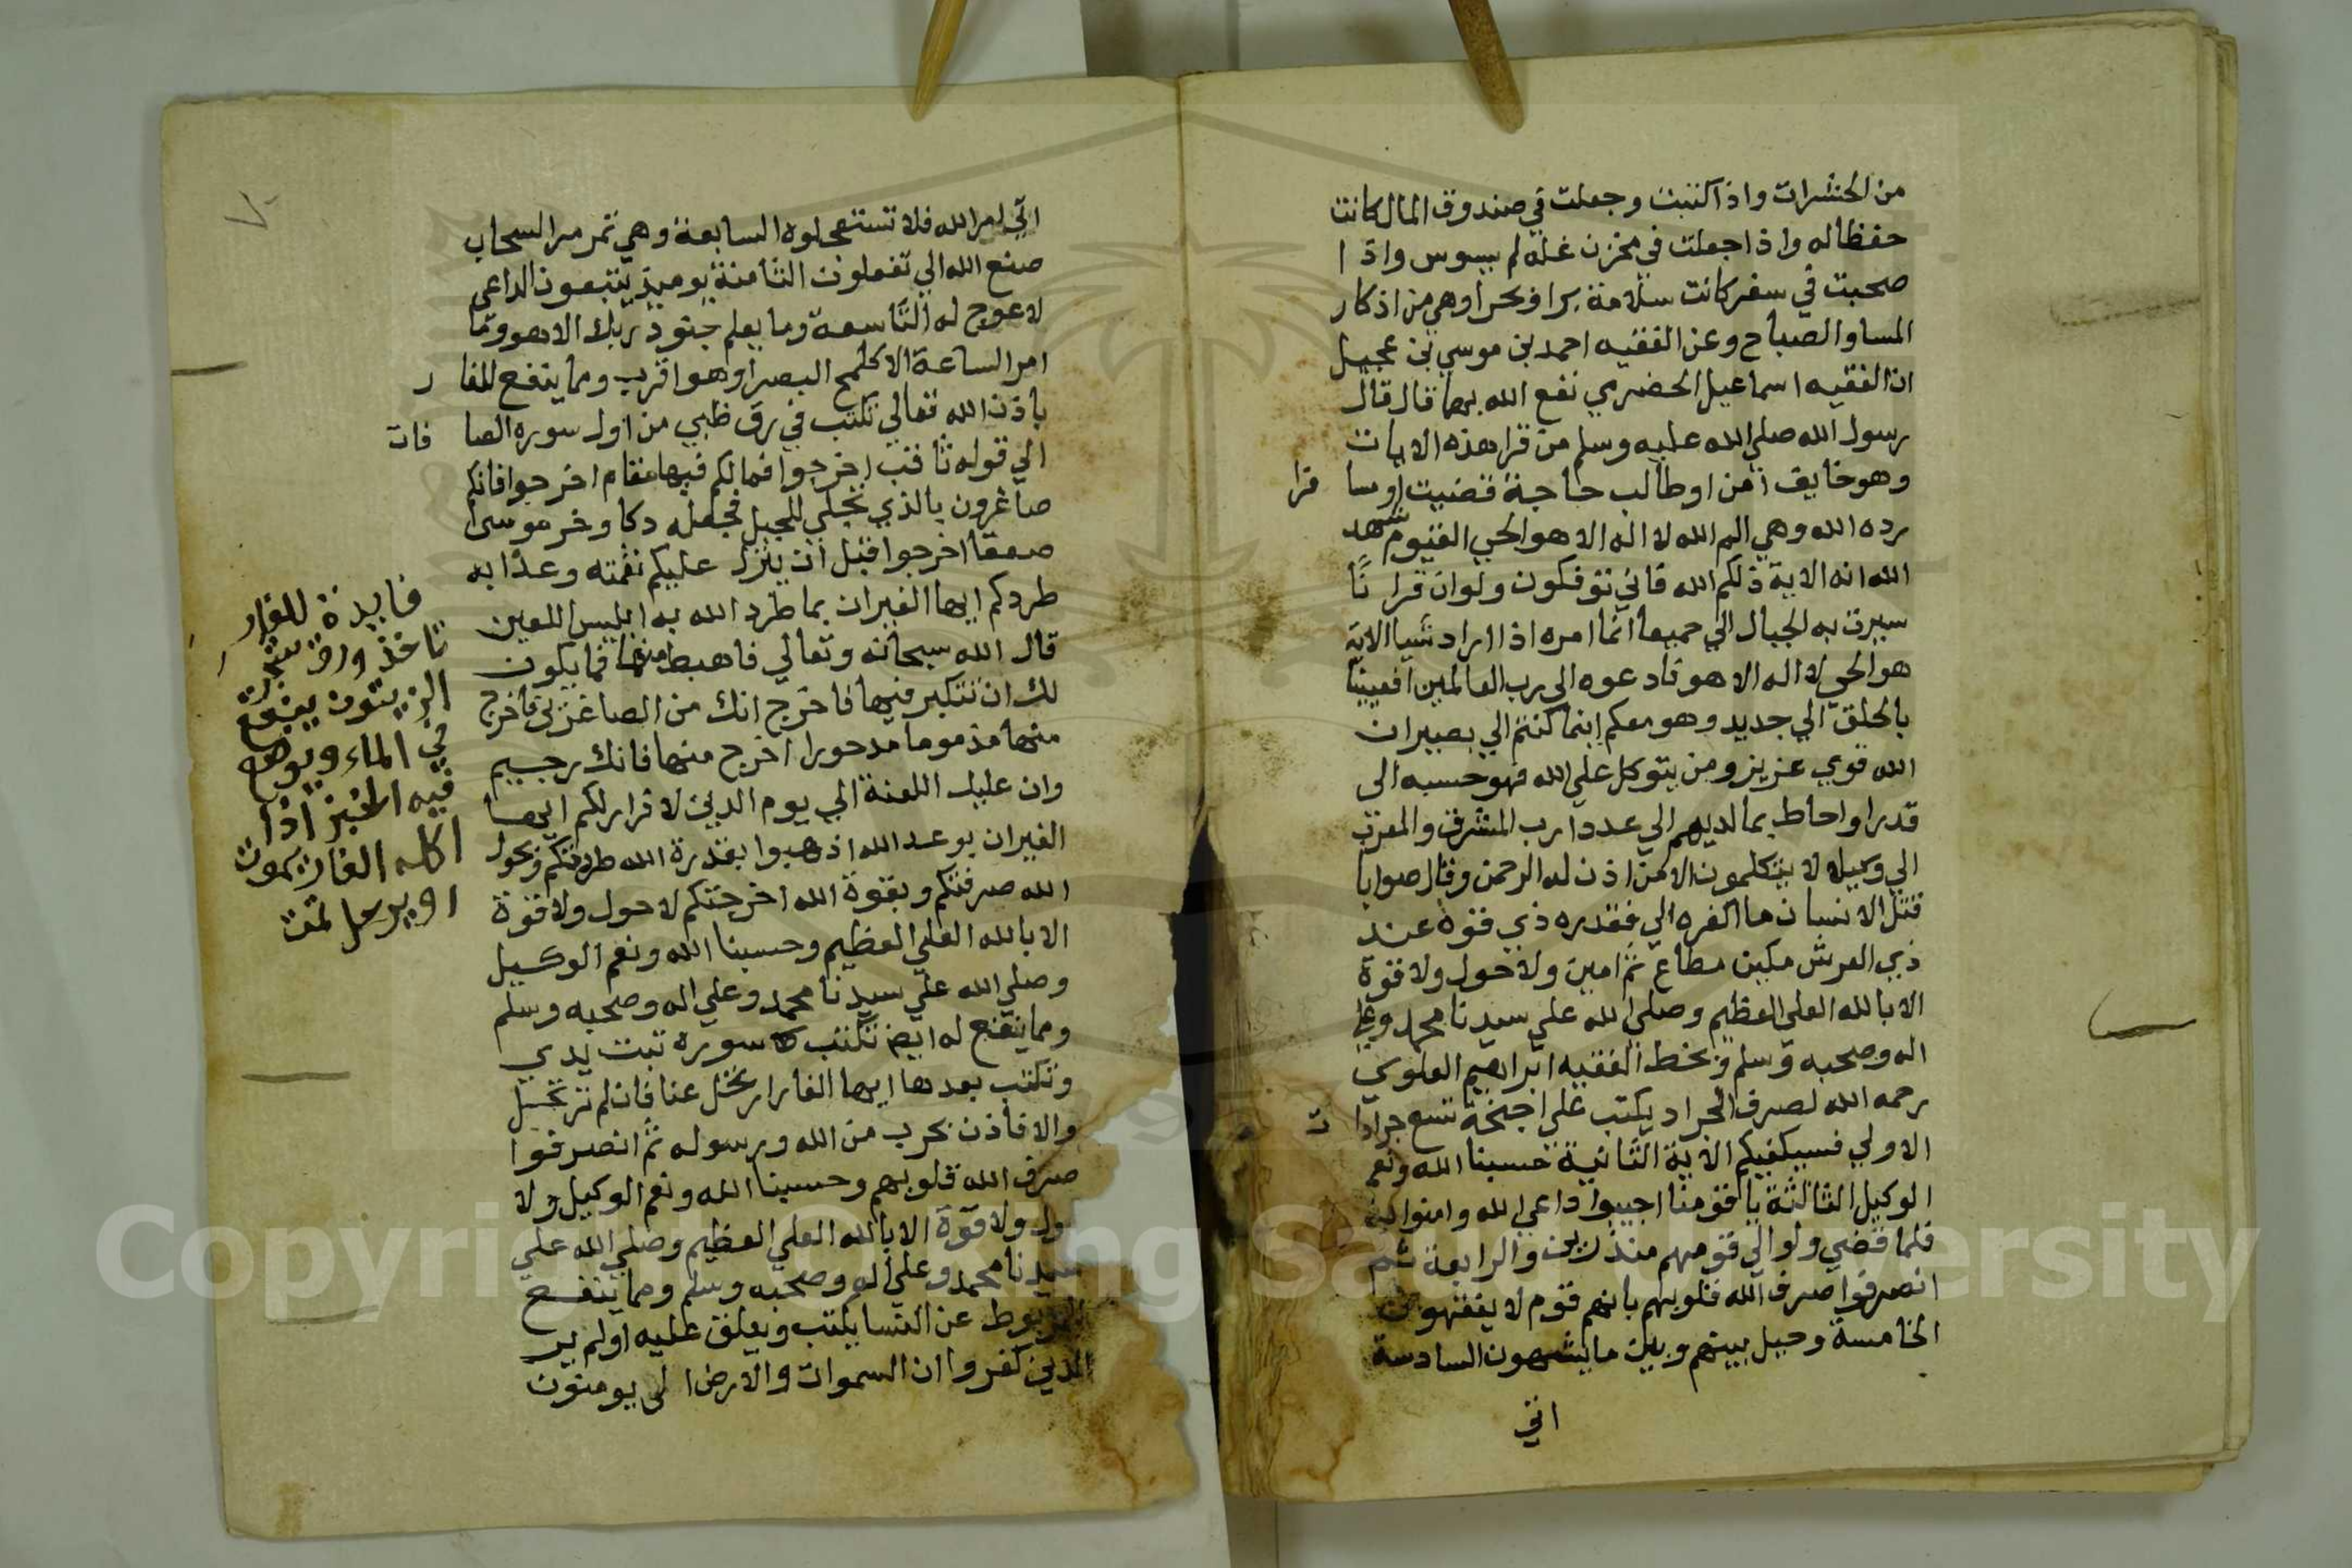 من الحشرات واذا كتبت وجعلت في صندوق المال كانت
حفظا له واذا جعلت في مخزن غله لم يسوس واذا
صحبت في سفر كانت سلامة برا وبحرا وهي من اذكار
المسا والصباح وعن الفقيه احمد بن موسي بن عجيل
ان الفقيه اسماعيل الحضرمي نفع الله بهما قال قال
رسول الله صلي الله عليه وسلم من قرا هذه الايات
وهو خايف امن او طالب حاجة قضيت او سا فرا
رده الله وهي الم الله لا اله الا هو الحي القيوم شهد
الله انه الاية ذلكم الله فاني توفكون ولو ان قرانا
سيرت به الجبال الي جميعا انما امره اذا اراد شيا الاية
هو الحي لا اله الا هو فادعوه الي رب العالمين افعيينا
بالخلق الي جديد وهو معكم اينما كنتم الي بصير ان
الله قوي عزيز ومن يتوكل علي الله فهو حسبه الي
قدرا واحاط بما لديهم الي عددا رب المشرق والمغرب
الي وكيلا لا يتكلمون الا من اذن له الرحمن وقال صوابا
قتل الانسان ما اكفره الي فقدره ذي قوة عند
ذي العرش مكين مطاع ثم امين ولا حول ولا قوة
الا بالله العلي العظيم وصلي الله علي سيدنا محمد وعلي
اله وصحبه وسلم وبخط الفقيه ابراهيم العلوي
رحمه الله لصرف الجراد يكتب علي اجنحة تسع جرادات
الاولي فسيكفيكهم الاية الثانية حسبنا الله ونعم
الوكيل الثالثة يا قومنا اجيبوا داعي الله وامنوا به
فلما قضي ولوا الي قومهم منذرين والرابعة ثم
انصرفوا صرف الله قلوبهم بانهم قوم لا يفقهون
الخامسة وحيل بينهم وبين ما يشتهون السادسة
اتي
اتي امر الله فلا تستعجلوه السابعة وهي تمر مر السحاب
صنع الله الي تفعلون الثامنة يوميذ يتبعون الداعي
لا عوج له التاسعة وما يعلم جنود ربك الا هو وما
امر الساعة الا كلمح البصر او هو اقرب ومما ينفع للفار
باذن الله تعالي تكتب في رق ظبي من اول سورة الصافات
الي قوله ثاقب اخرجوا فما لكم فيها مقام اخرجوا فانكم
صاغرون بالذي تجلي للجبل فجعله دكا وخر موسي
صعقا اخرجوا قبل ان ينزل عليكم نقمته وعذابه
طردكم ايها الفيران بما طرد الله به ابليس اللعين
قال الله سبحانه وتعالي فاهبط منها فما يكون
لك ان تتكبر فيها فاخرج انك من الصاغرين فاخرج
منها مذموما مدحورا اخرج منها فانك رجيم
وان عليك اللعنة الي يوم الدين لا قرار لكم ايها
الفيران بوعد الله اذهبوا بقدرة الله طردتكم وبحول
الله صرفتكم وبقوة الله اخرجتكم لا حول ولا قوة
الا بالله العلي العظيم وحسبنا الله ونعم الوكيل
وصلي الله علي سيدنا محمد وعلي اله وصحبه وسلم
ومما ينفع له ايضا تكتب سورة تبت يدي
وتكتب بعدها ايها الفار ارتحل عنا فان لم ترتحل
والا فاذن بحرب من الله ورسوله ثم انصرفوا
صرف الله قلوبهم وحسبنا الله ونعم الوكيل ولا
ول ولا قوة الا بالله العلي العظيم وصلي الله علي
سيدنا محمد وعلي اله وصحبه وسلم ومما ينفع
المربوط عن النسا يكتب ويعلق عليه اولم ير
الذين كفروا ان السموات والارض الي يومنون
فايدة للفار
تاخذ ورق شجرة
الزيتون ينقع
في الماء ويوضع
فيه الخبز اذا
اكله الفار يموت
او يرحل تمت
Copyright © King Saud University